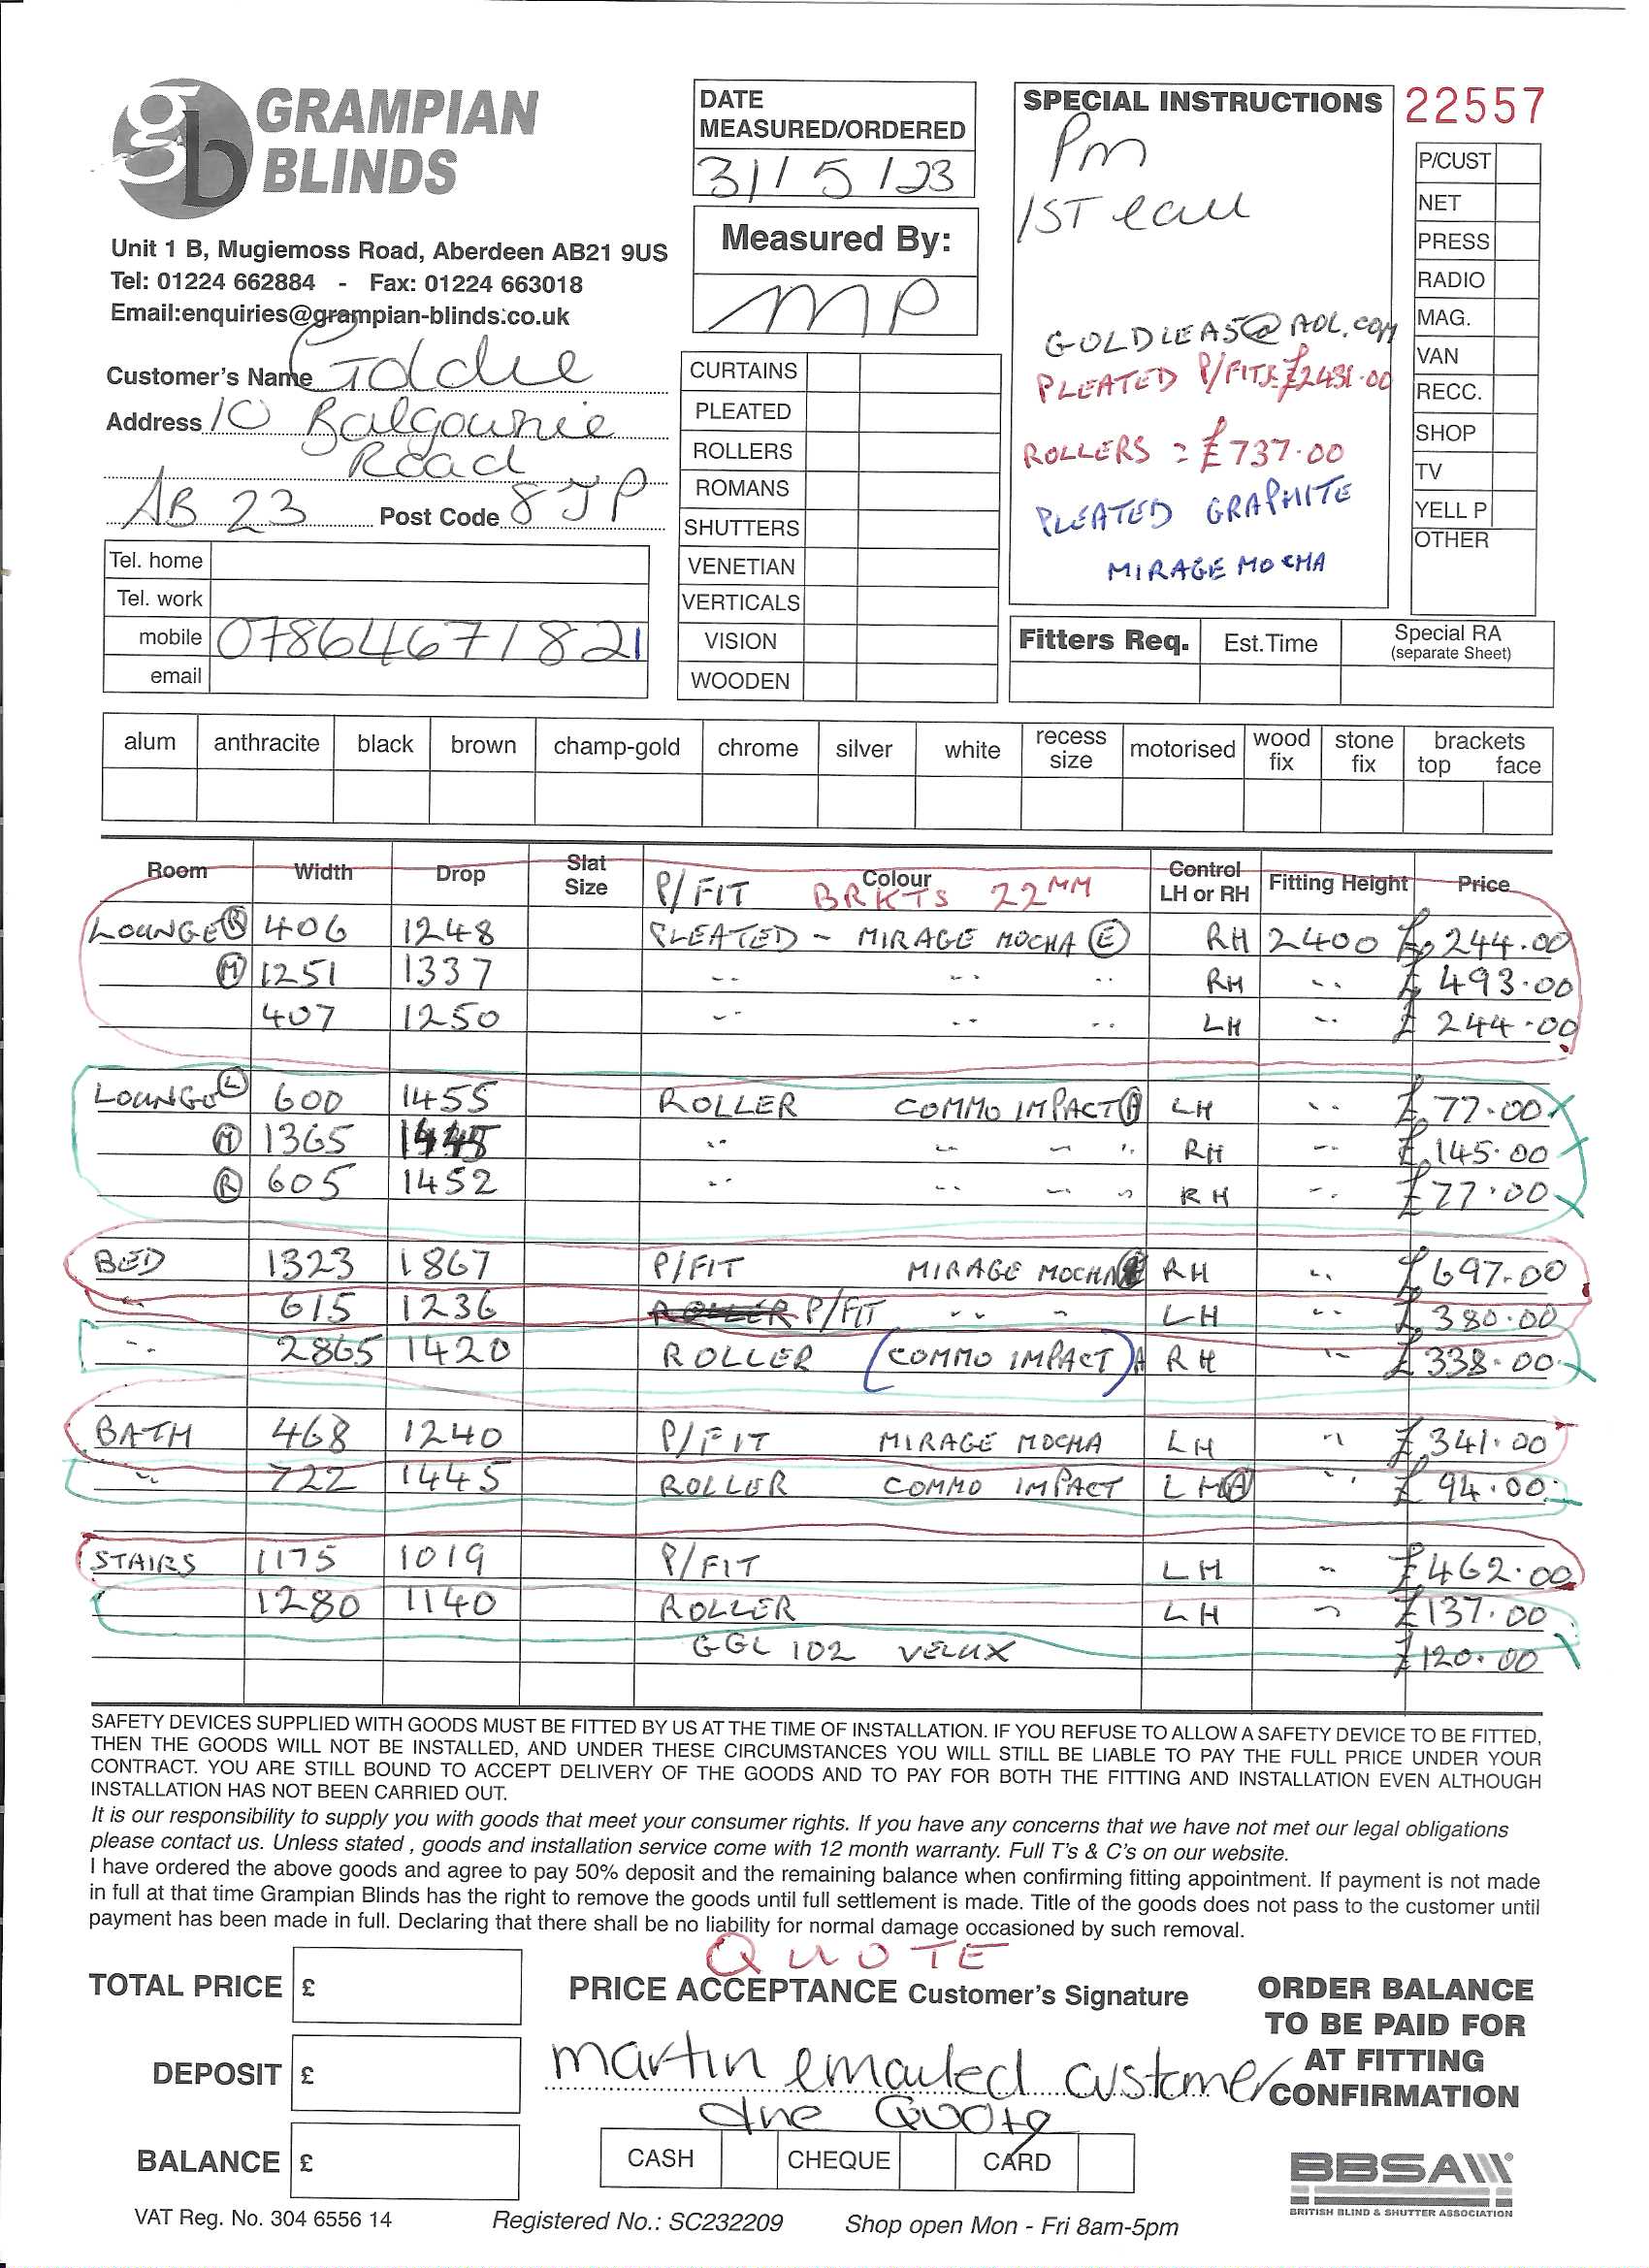 GRAMPIAN
BLINDS
Unit 1 B, Mugiemoss Road, Aberdeen AB21 9US
Tel: 01224 662884 - Fax: 01224 663018
Email:enquiries@grampian-blinds.co.uk
Customer's Name Goldie
Address 10 Balgownie
Road
AB 23 Post Code 8JP
Tel. home
Tel. work
mobile 07864671821
email
DATE
MEASURED/ORDERED
31/5/23
Measured By:
MP
CURTAINS
PLEATED
ROLLERS
ROMANS
SHUTTERS
VENETIAN
VERTICALS
VISION
WOODEN
SPECIAL INSTRUCTIONS
Pm
1ST call
GOLDLEA5@AOL.COM
PLEATED P/FITS £2431.00
ROLLERS = £737.00
PLEATED GRAPHITE
MIRAGE MOCHA
22557
P/CUST
NET
PRESS
RADIO
MAG.
VAN
RECC.
SHOP
TV
YELL P
OTHER
Fitters Req. Est.Time Special RA
(separate Sheet)
alum anthracite black brown champ-gold chrome silver white recess size motorised wood fix stone fix brackets top face
Room Width Drop Slat Size Colour Control LH or RH Fitting Height Price
P/FIT BRKTS 22MM
LOUNGE R 406 1248 PLEATED - MIRAGE MOCHA E RH 2400 £244.00
M 1251 1337 " " " RH " £493.00
407 1250 " " " LH " £244.00
LOUNGE L 600 1455 ROLLER COMMO IMPACT A LH " £77.00
M 1365 1445 " " " " RH " £145.00
R 605 1452 " " " " RH " £77.00
BED 1323 1867 P/FIT MIRAGE MOCHA RH " £697.00
" 615 1236 ROLLER P/FIT " " " LH " £380.00
" 2865 1420 ROLLER (COMMO IMPACT) A RH " £338.00
BATH 468 1240 P/FIT MIRAGE MOCHA LH " £341.00
" 722 1445 ROLLER COMMO IMPACT LH A " £94.00
STAIRS 1175 1019 P/FIT LH " £462.00
1280 1140 ROLLER LH " £137.00
GGL 102 VELUX £120.00
SAFETY DEVICES SUPPLIED WITH GOODS MUST BE FITTED BY US AT THE TIME OF INSTALLATION. IF YOU REFUSE TO ALLOW A SAFETY DEVICE TO BE FITTED,
THEN THE GOODS WILL NOT BE INSTALLED, AND UNDER THESE CIRCUMSTANCES YOU WILL STILL BE LIABLE TO PAY THE FULL PRICE UNDER YOUR
CONTRACT. YOU ARE STILL BOUND TO ACCEPT DELIVERY OF THE GOODS AND TO PAY FOR BOTH THE FITTING AND INSTALLATION EVEN ALTHOUGH
INSTALLATION HAS NOT BEEN CARRIED OUT.
It is our responsibility to supply you with goods that meet your consumer rights. If you have any concerns that we have not met our legal obligations
please contact us. Unless stated , goods and installation service come with 12 month warranty. Full T's & C's on our website.
I have ordered the above goods and agree to pay 50% deposit and the remaining balance when confirming fitting appointment. If payment is not made
in full at that time Grampian Blinds has the right to remove the goods until full settlement is made. Title of the goods does not pass to the customer until
payment has been made in full. Declaring that there shall be no liability for normal damage occasioned by such removal.
QUOTE
TOTAL PRICE £
DEPOSIT £
BALANCE £
PRICE ACCEPTANCE Customer's Signature
martin emailed customer
the Quote
CASH CHEQUE CARD
ORDER BALANCE
TO BE PAID FOR
AT FITTING
CONFIRMATION
BBSA
BRITISH BLIND & SHUTTER ASSOCIATION
VAT Reg. No. 304 6556 14 Registered No.: SC232209 Shop open Mon - Fri 8am-5pm